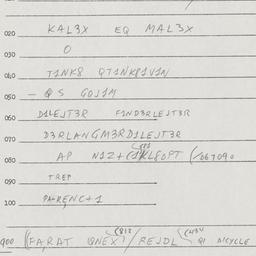 020 KAL3X EQ MAL3X
030 O
040 T1NK8 QT1NKP1V1N
050 - QS GOJ1M
060 D1LEJT3R F1ND3RLEJT3R
070 D3RLANGM3RD1LEJT3R
080 AP N1Z+(1KL8OPT (/067090
090 TREP
100 PARKENC+1
900 ((FARAT / REJDL QI